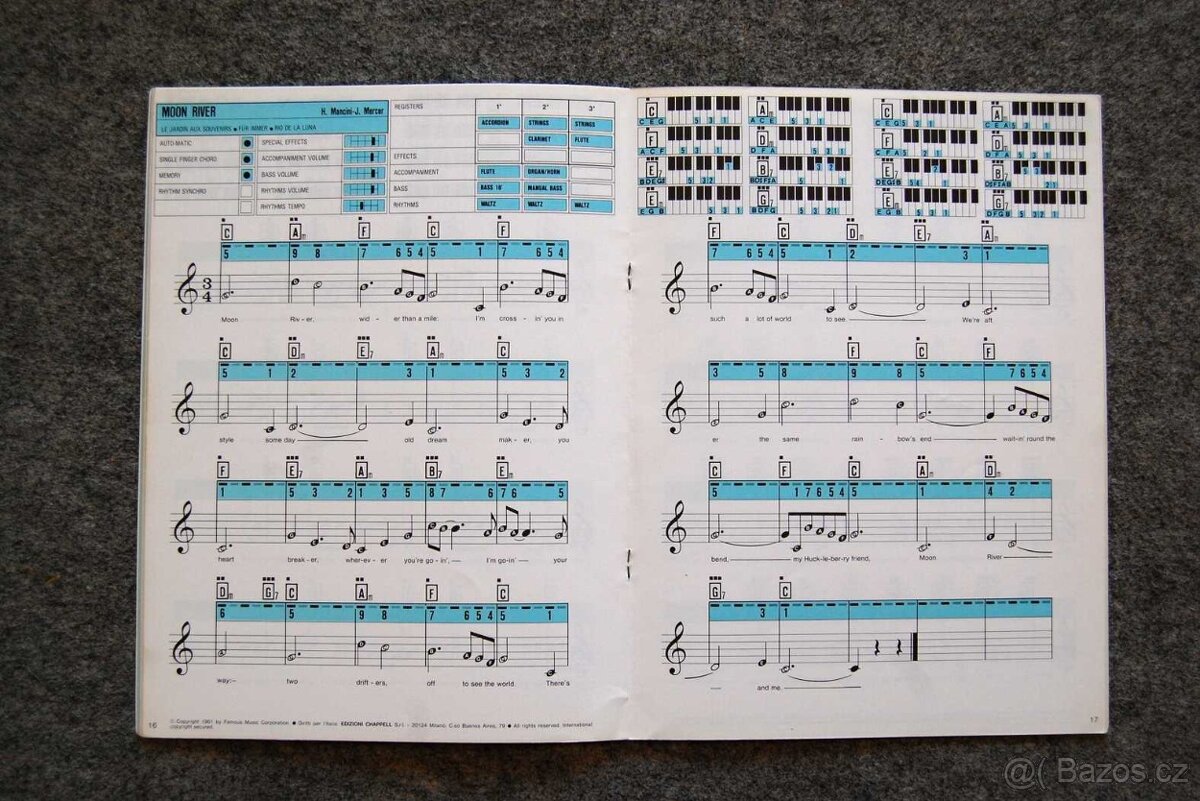 MOON RIVER H. Mancini-J. Mercer
LE JARDIN AUX SOUVENIRS ● FÜR IMMER ● RIO DE LA LUNA
AUTO-MATIC SPECIAL EFFECTS
SINGLE FINGER CHORD ACCOMPANIMENT VOLUME
MEMORY BASS VOLUME
RHYTHM SYNCHRO RHYTHMS VOLUME
RHYTHMS TEMPO
REGISTERS 1° 2° 3°
ACCORDION STRINGS STRINGS
CLARINET FLUTE
EFFECTS
ACCOMPANIMENT FLUTE ORGAN/HORN
BASS BASS 16' MANUAL BASS
RHYTHMS WALTZ WALTZ WALTZ
C Am F C F
5 9 8 7 6 5 4 5 1 7 6 5 4
3
4
Moon Riv-er, wid - er than a mile: I'm cross - in' you in
C Dm E7 Am C
5 1 2 3 1 5 3 2
style some day old dream mak-er, you
F E7 Am B7 Em
1 5 3 2 1 3 5 8 7 6 7 6 5
heart break-er, wher-ev-er you're go-in',— I'm go-in'— your
Dm G7 C Am F C
6 5 9 8 7 6 5 4 5 1
way:— two drift-ers, off to see the world. There's
16
© Copyright 1961 by Famous Music Corporation ● Diritti per l'Italia: EDIZIONI CHAPPELL S.r.l. - 20124 Milano, C.so Buenos Aires, 79 ● All rights reserved. International
copyright secured.
F C Dm E7 Am
7 6 5 4 5 1 2 3 1
such a lot of world to see. We're aft
F C F
3 5 8 9 8 5 7 6 5 4
er the same rain - bow's end waitin' round the
C F C Am Dm
5 1 7 6 5 4 5 1 4 2
bend, my Huck-le-ber-ry friend, Moon River
G7 C
3 1
and me.
17
@( Bazos.cz